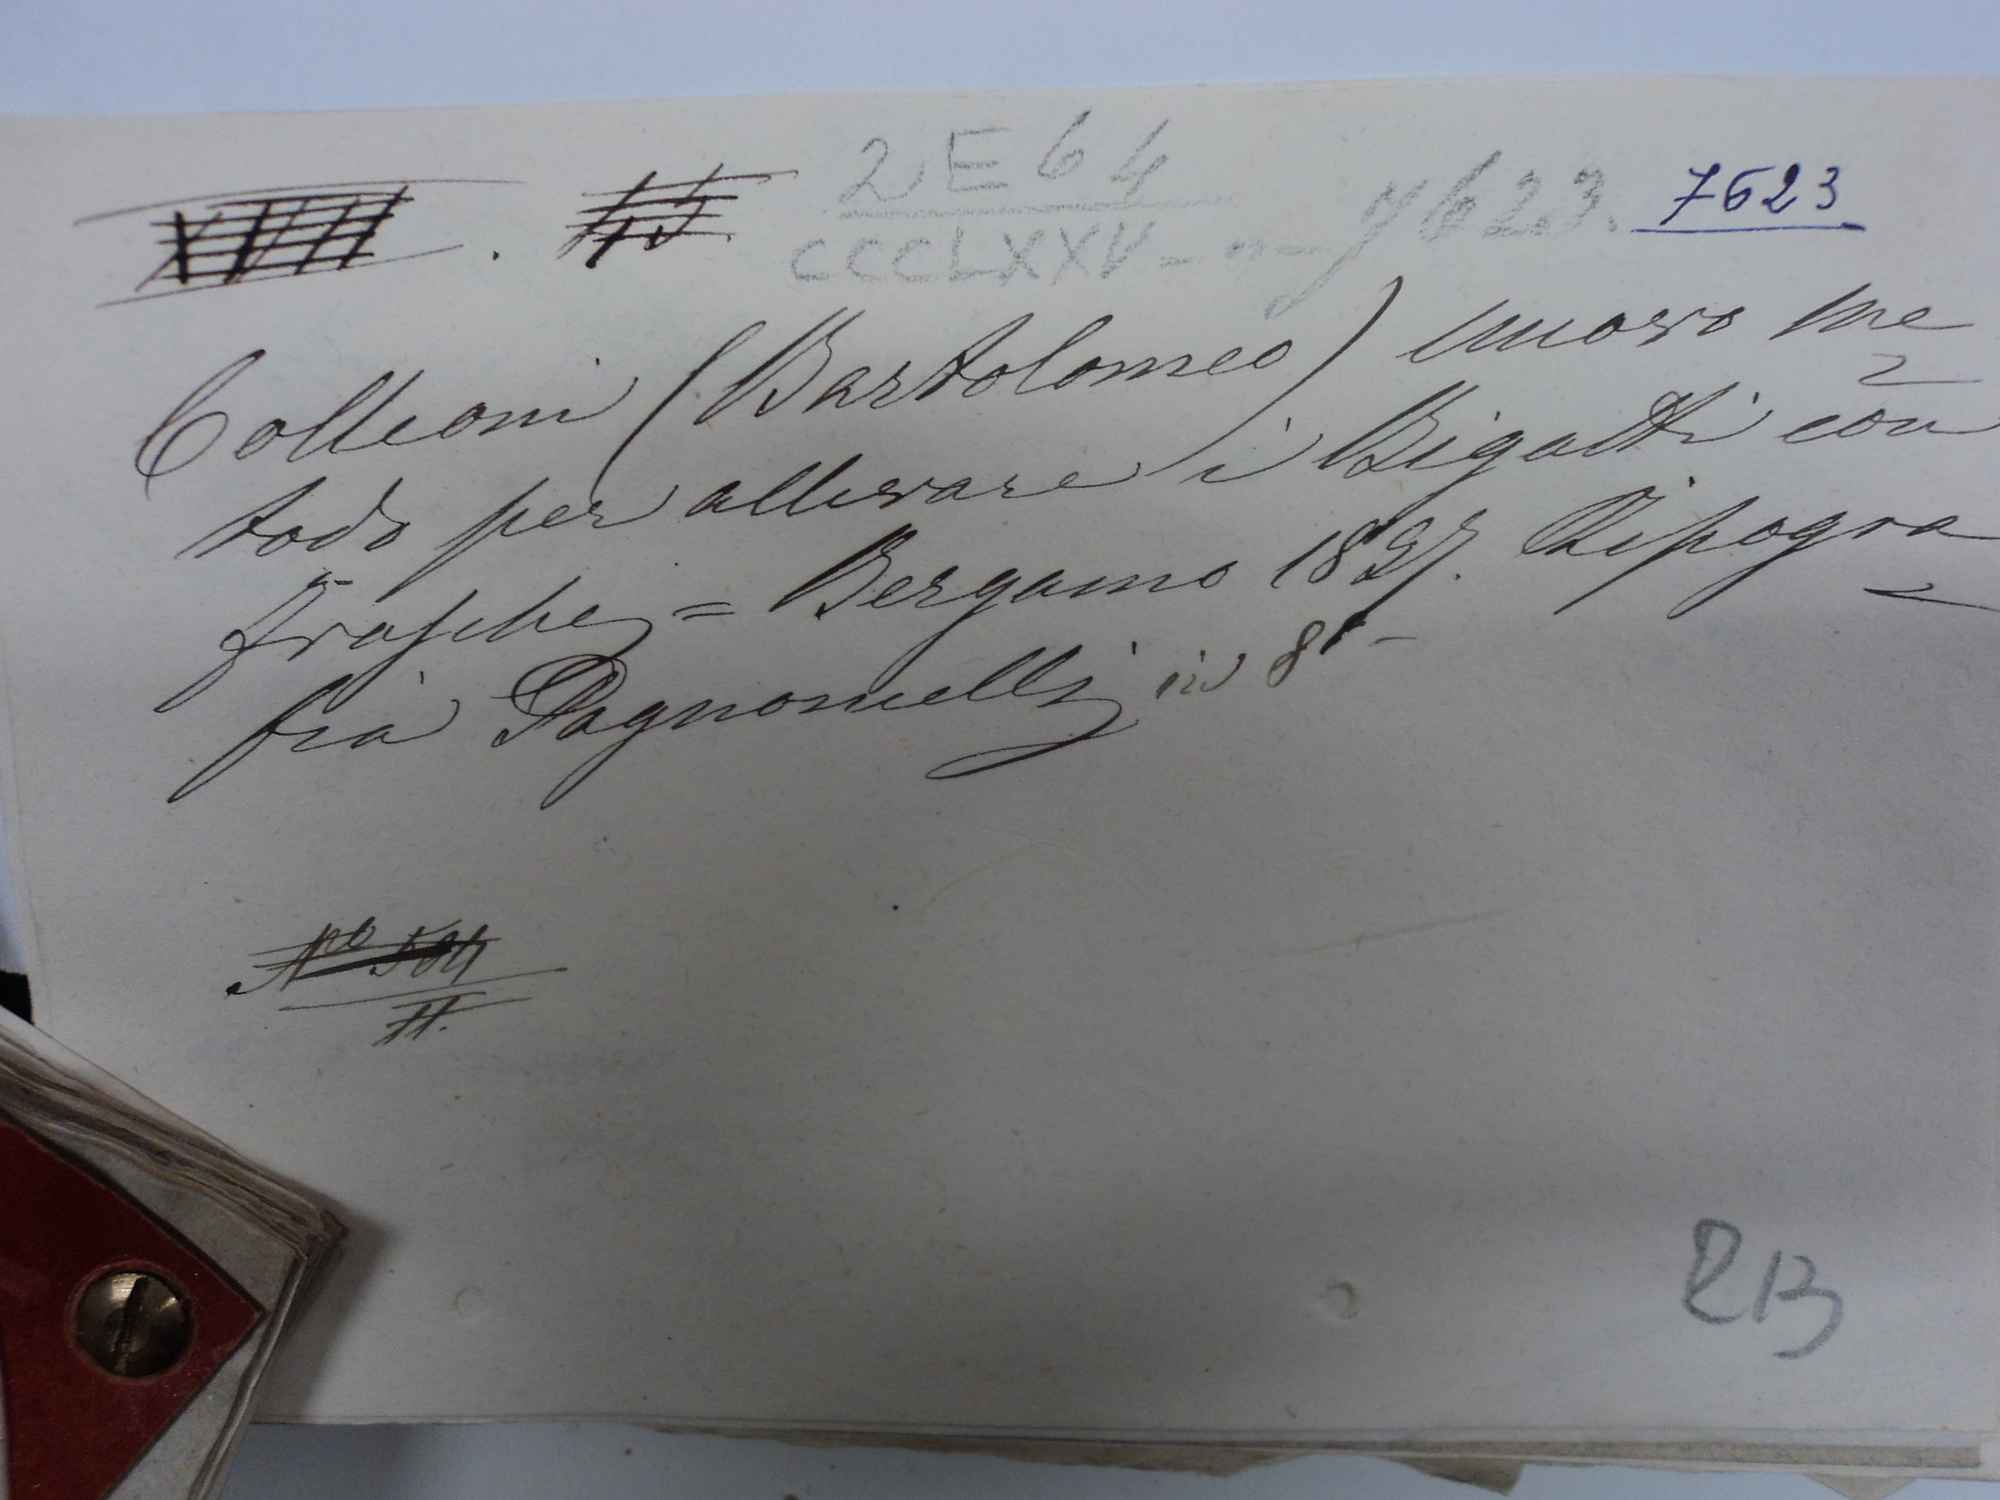 2E64
CCCLXXV - n - 7623. 7623
Colleoni (Bartolomeo) nuovo me
todo per allevare i Bigatti con
Frasche = Bergamo 1837. Tipogra
fia Pagnoncelli in 8°-
N° 504
II.